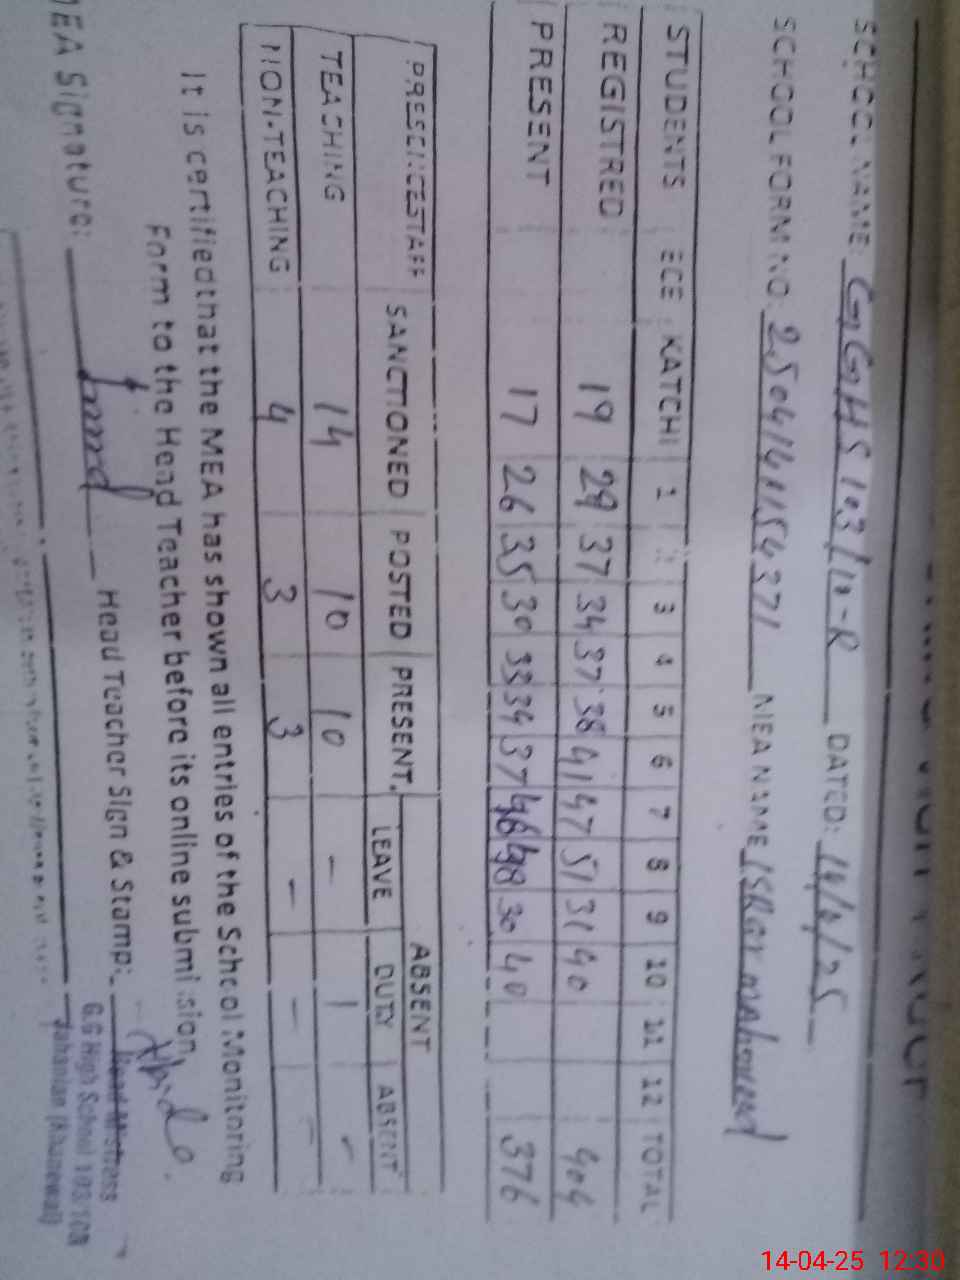 SCHOOL NAME: GGHS 103/10-R DATED: 14/4/25
SCHOOL FORM NO: MEA NAME
STUDENTS ECE KATCHI 1 2 3 4 5 6 7 8 9 10 11 12 TOTAL
REGISTRED 19 29 37 34 37 38 41 47 51 31 40 404
PRESENT 17 26 35 30 33 34 37 46 48 30 40 376
PRESENCESTAFF SANCTIONED POSTED PRESENT ABSENT
LEAVE DUTY ABSENT
TEACHING 14 10 10 - 1 -
NON-TEACHING 4 3 3 - - -
It is certified that the MEA has shown all entries of the School Monitoring
Form to the Head Teacher before its online submission.
MEA Signature: Head Teacher Sign & Stamp:
Head Mistress
G.G High School 103/10R
Jahanian (Khanewal)
14-04-25 12:30